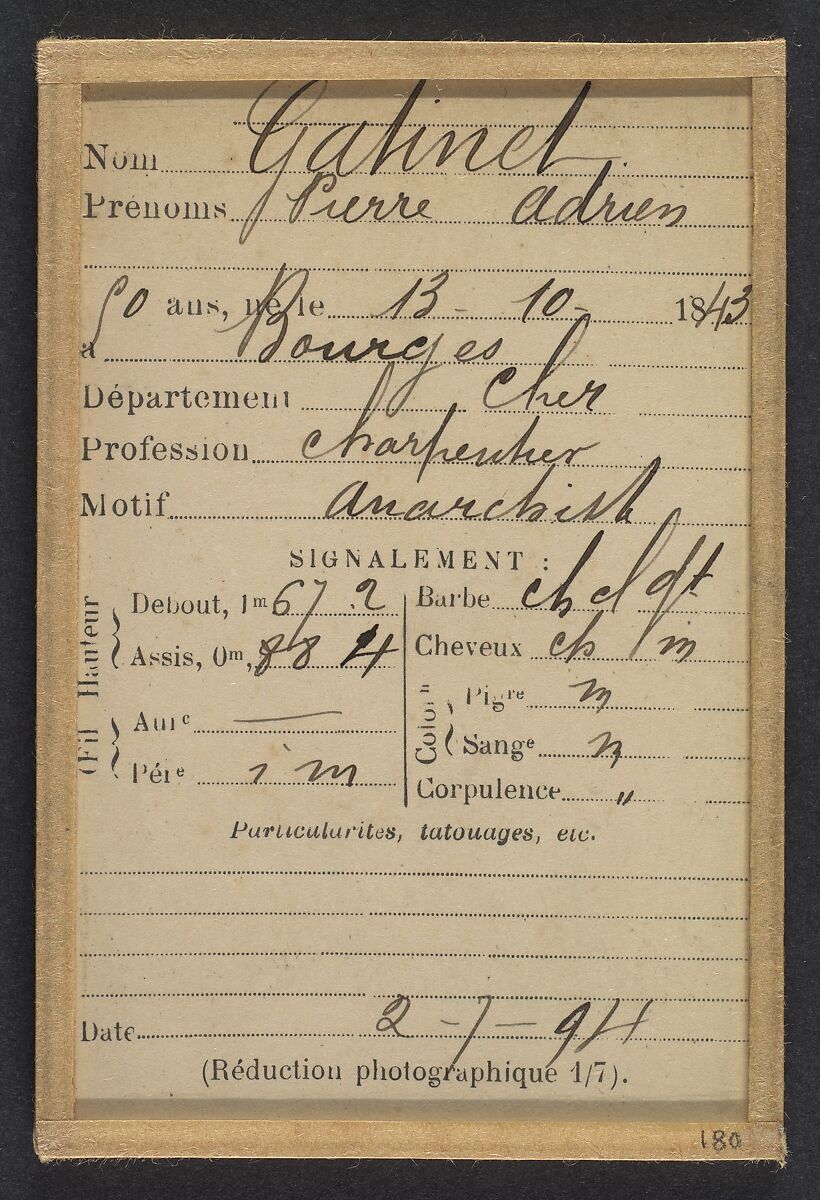 Nom Gatinet.
Prénoms Pierre Adrien
50 ans, né le 13 - 10 - 1843
à Bourges
Département Cher
Profession Charpentier
Motif Anarchiste
SIGNALEMENT :
Hauteur
Debout, 1m 67 2
Assis, 0m, 88 4
(Fil
Aure —
Péie i m
Barbe ch
Cheveux ch m
Colorn
Pigre m
Sange m
Corpulence "
Particularités, tatouages, etc.
Date 2 - 7 - 94
(Réduction photographique 1/7).
180